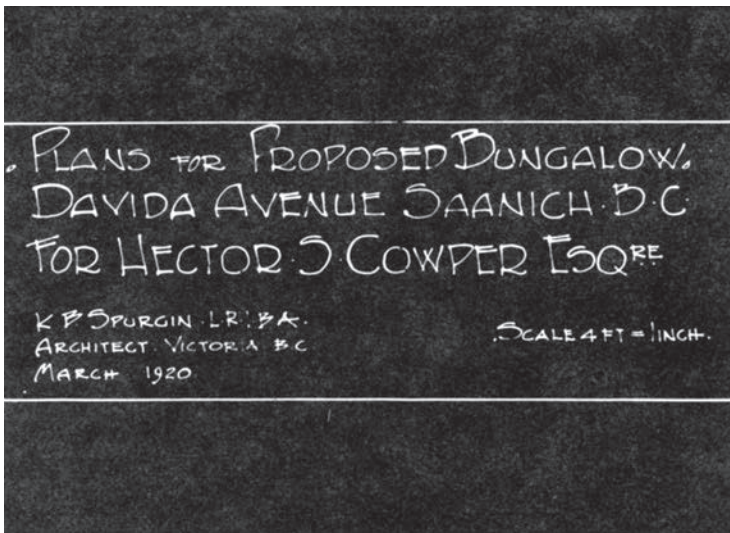 . PLANS FOR PROPOSED BUNGALOW.
DAVIDA AVENUE SAANICH. B. C
FOR HECTOR. S. COWPER ESQRE
K B SPURGIN. L.R.I.B.A.
ARCHITECT. VICTORIA B.C
MARCH 1920
. SCALE 4 FT = 1 INCH.